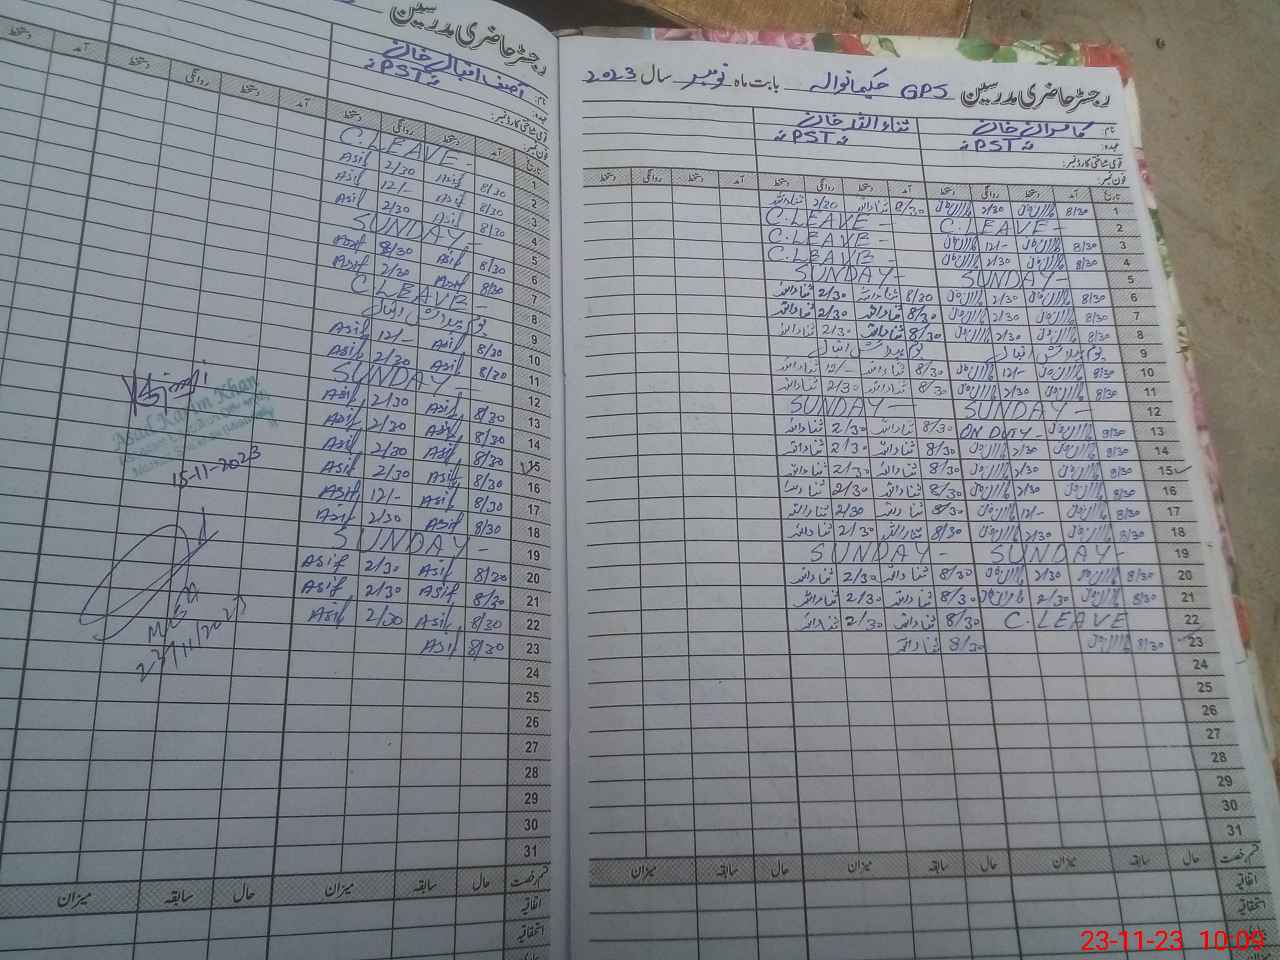 رجسٹر حاضری مدرسین GPS حکیمانوالہ بابت ماہ نومبر سال 2023
نام: کامران خان ثناء اللہ خان
عہدہ: PST PST
قومی شناختی کارڈ نمبر:
فون نمبر:
تاریخ آمد دستخط روانگی دستخط آمد دستخط روانگی دستخط آمد دستخط روانگی دستخط
1 8/30 2/30 8/30 ثناء اللہ 2/30 ثناء اللہ
2 C.LEAVE - C.LEAVE -
3 8/30 12/- C.LEAVE -
4 8/30 2/30 C.LEAVE -
5 SUNDAY - SUNDAY -
6 8/30 2/30 8/30 ثناء اللہ 2/30 ثناء اللہ
7 8/30 2/30 8/30 ثناء اللہ 2/30 ثناء اللہ
8 8/30 2/30 8/30 ثناء اللہ 2/30 ثناء اللہ
9 یوم پیدائش اقبال یوم پیدائش اقبال
10 8/30 12/- 8/30 ثناء اللہ 12/- ثناء اللہ
11 8/30 2/30 8/30 ثناء اللہ 2/30 ثناء اللہ
12 SUNDAY - SUNDAY -
13 8/30 ON DUTY - 8/30 ثناء اللہ 2/30 ثناء اللہ
14 8/30 2/30 8/30 ثناء اللہ 2/30 ثناء اللہ
15 8/30 2/30 8/30 ثناء اللہ 2/30 ثناء اللہ
16 8/30 2/30 8/30 ثناء اللہ 2/30 ثناء اللہ
17 8/30 12/- 8/30 ثناء اللہ 2/30 ثناء اللہ
18 8/30 2/30 8/30 ثناء اللہ 2/30 ثناء اللہ
19 SUNDAY - SUNDAY -
20 8/30 2/30 8/30 ثناء اللہ 2/30 ثناء اللہ
21 8/30 2/30 8/30 ثناء اللہ 2/30 ثناء اللہ
22 C.LEAVE 8/30 ثناء اللہ 2/30 ثناء اللہ
23 8/30 8/30 ثناء اللہ
24
25
26
27
28
29
30
31
قسم رخصت حال سابقہ میزان حال سابقہ میزان حال سابقہ میزان
اتفاقیہ
استحقاقیہ
رجسٹر حاضری مدرسین
نام: آصف اقبال خان
عہدہ: PST
قومی شناختی کارڈ نمبر:
فون نمبر:
تاریخ آمد دستخط روانگی دستخط آمد دستخط روانگی دستخط آمد دستخط
1 C.LEAVE -
2 8/30 Asif 2/30 Asif
3 8/30 Asif 12/- Asif
4 8/30 Asif 2/30 Asif
5 SUNDAY -
6 8/30 Asif 2/30 Asif
7 8/30 Asif 2/30 Asif
8 C.LEAVE -
9 یوم پیدائش اقبال
10 8/30 Asif 12/- Asif
11 8/30 Asif 2/30 Asif
12 SUNDAY -
13 8/30 Asif 2/30 Asif
14 8/30 Asif 2/30 Asif
15 8/30 Asif 2/30 Asif
16 8/30 Asif 2/30 Asif
17 8/30 Asif 12/- Asif
18 8/30 Asif 2/30 Asif
19 SUNDAY -
20 8/30 Asif 2/30 Asif
21 8/30 Asif 2/30 Asif
22 8/30 Asif 2/30 Asif
23 8/30 Asif
24
25
26
27
28
29
30
31
قسم رخصت حال سابقہ میزان حال سابقہ میزان
اتفاقیہ
استحقاقیہ
Asad Karim Khan
15-11-2023
23/11/2023
23-11-23 10:09